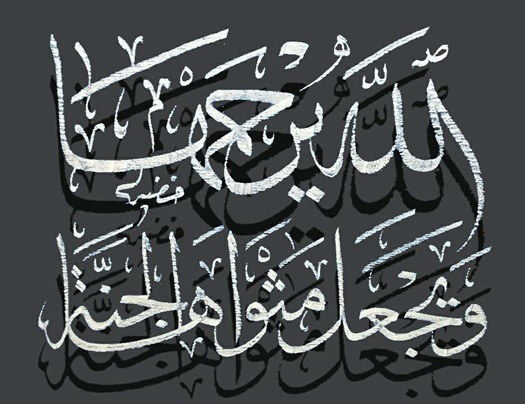 الله يرحمها
ويجعل مثواها الجنة